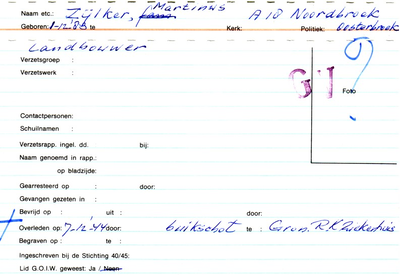 Naam etc.: Zijlker, Martinus A 18 Noordbroek
Geboren: 1-12'85 te Kerk: Politiek: Oosterbroek
Landbouwer
Verzetsgroep :
Verzetswerk :
GII
Foto ?
Contactpersonen:
Schuilnamen :
Verzetsrapp. ingel. dd. bij:
Naam genoemd in rapp.:
op bladzijde:
Gearresteerd op : door:
Gevangen gezeten in :
Bevrijd op : uit : door:
Overleden op: 7-12-'44 door: buikschot te : Gron. R.K. Ziekenhuis
Begraven op : te :
Ingeschreven bij de Stichting 40/45:
Lid G.O.I.W. geweest: Ja / Neen